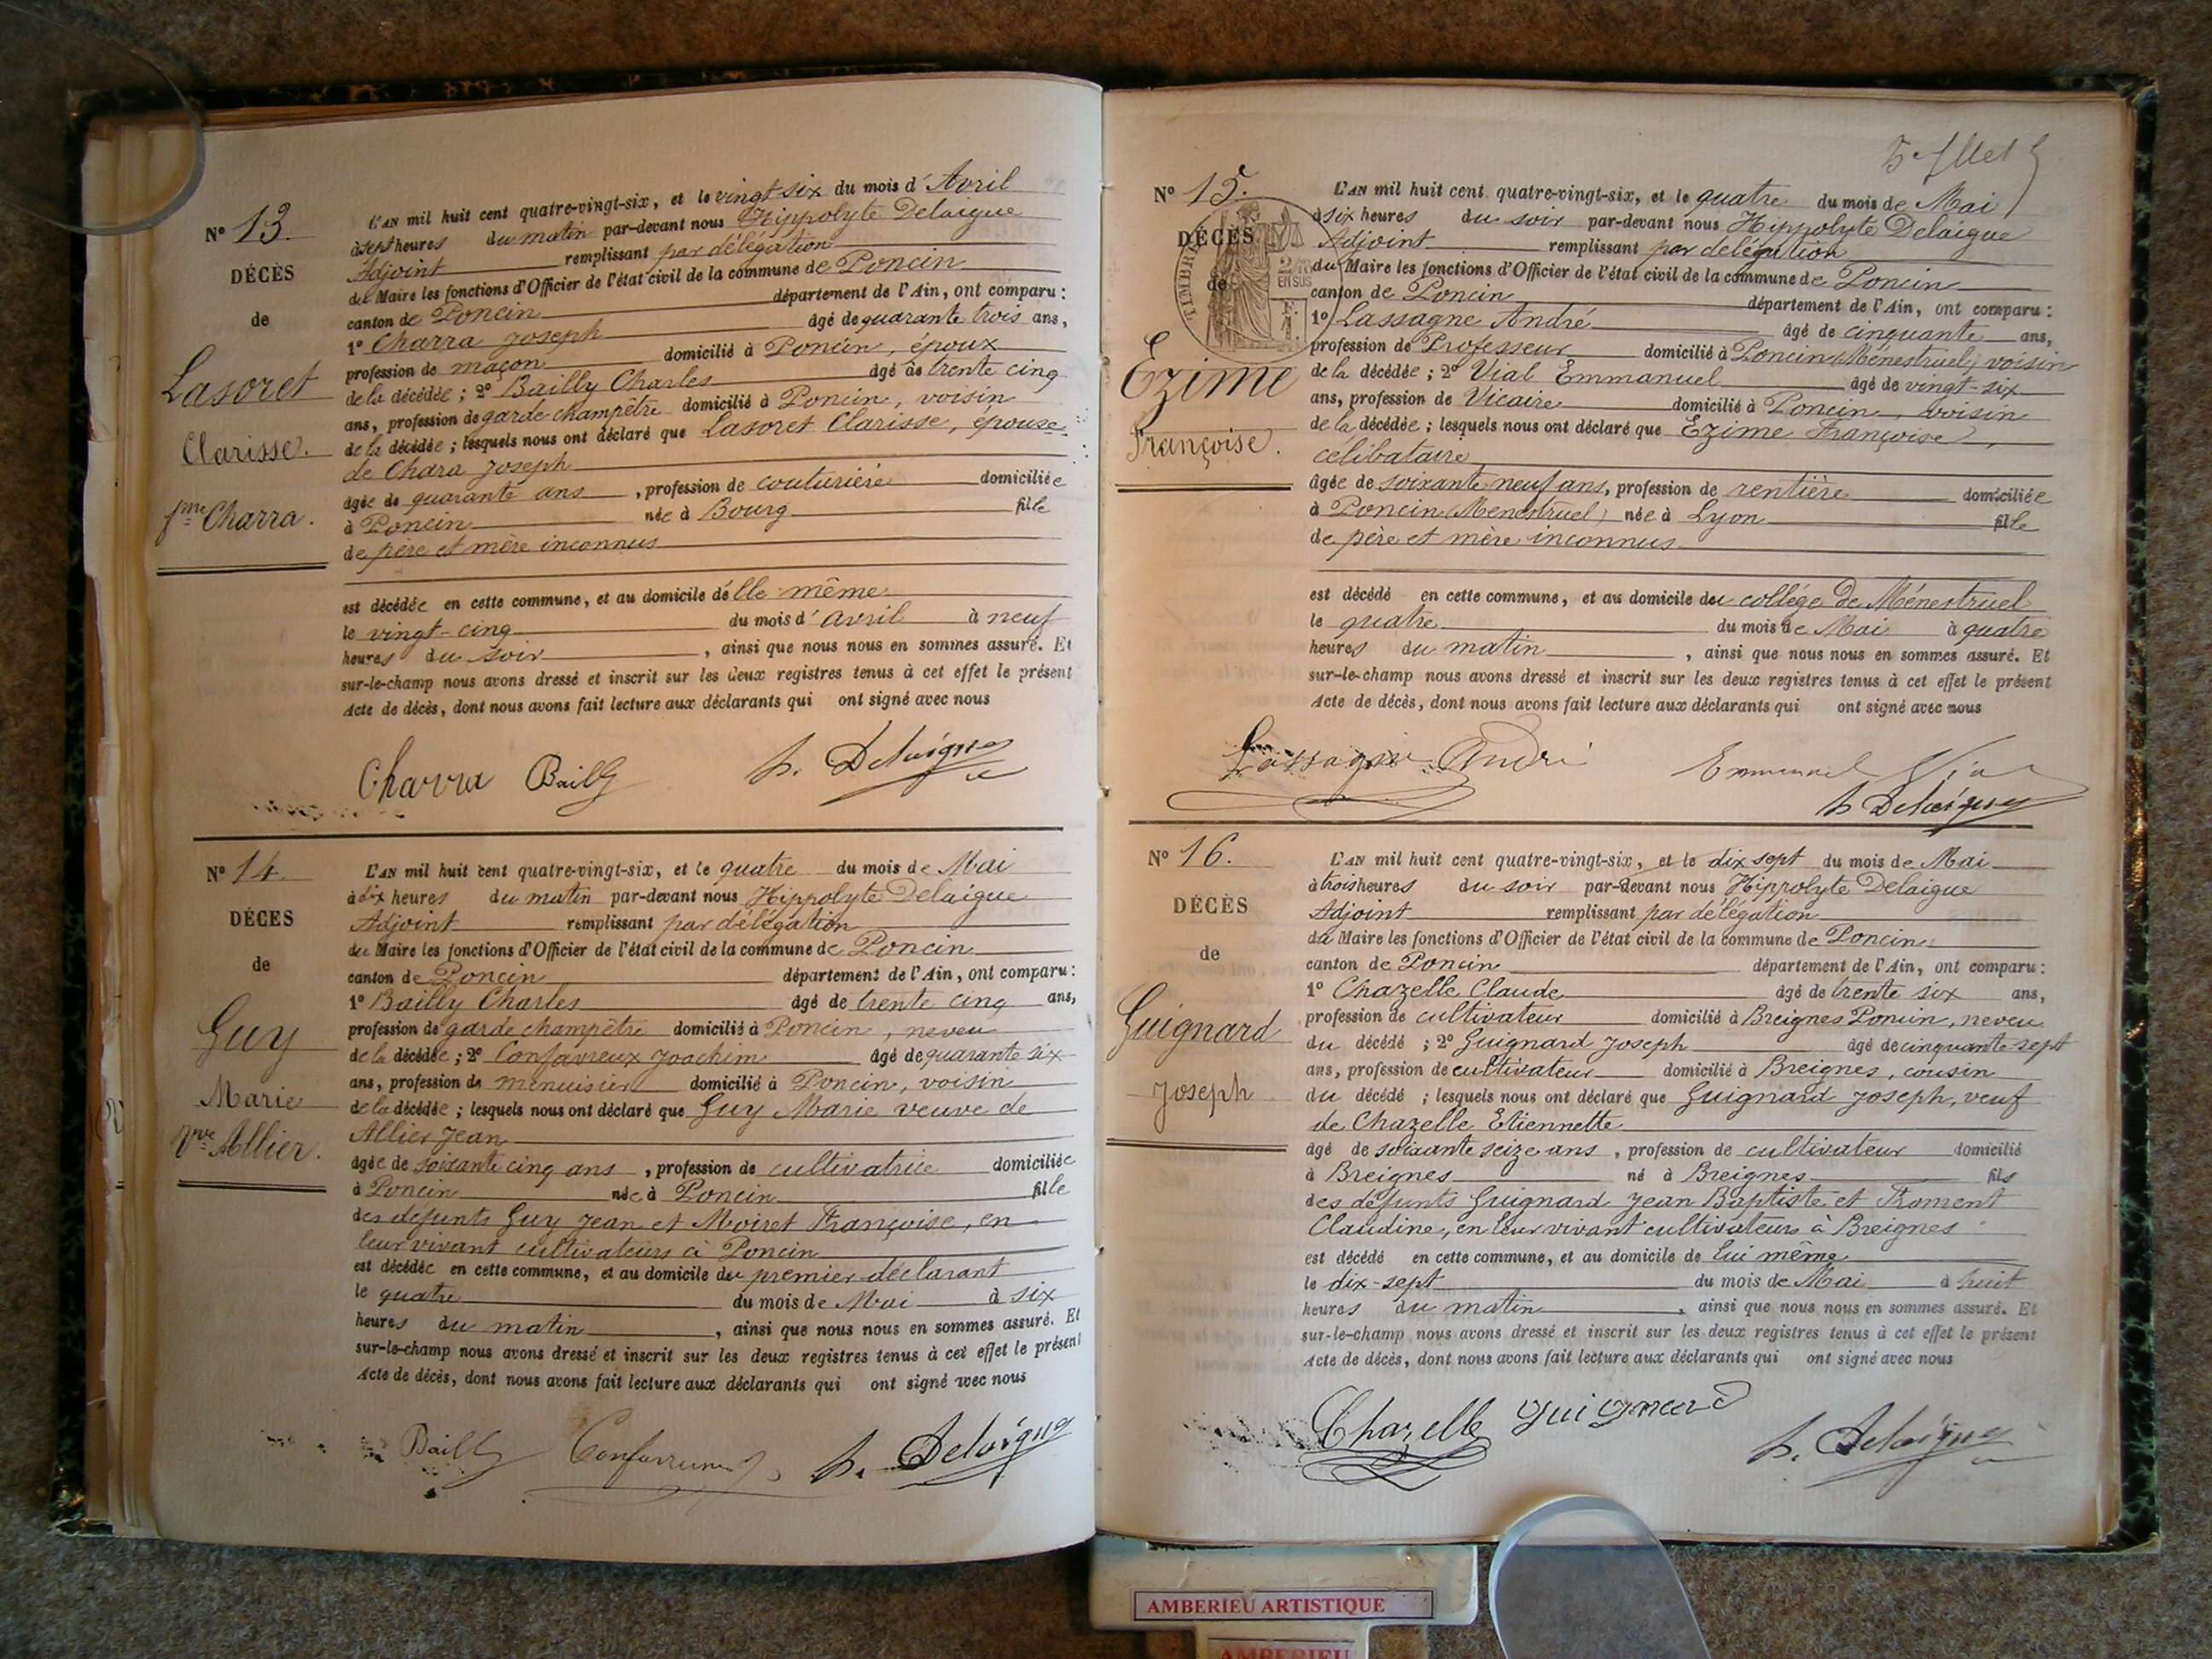 N° 13.
DÉCÈS
de
Lasoret
Clarisse.
fme Charra.
L'AN mil huit cent quatre-vingt-six, et le vingt-six du mois d'Avril
à sept heures du matin par-devant nous Hippolyte Delaigue
Adjoint remplissant par délégation
du Maire les fonctions d'Officier de l'état civil de la commune de Poncin
canton de Poncin département de l'Ain, ont comparu :
1° Charra Joseph âgé de quarante trois ans,
profession de maçon domicilié à Poncin, époux
de la décédée ; 2° Bailly Charles âgé de trente cinq
ans, profession de garde champêtre domicilié à Poncin, voisin
de la décédée ; lesquels nous ont déclaré que Lasoret Clarisse, épouse
de Chara Joseph
âgée de quarante ans, profession de couturière domiciliée
à Poncin née à Bourg fille
de père et mère inconnus
est décédée en cette commune, et au domicile d'elle même
le vingt-cinq du mois d'avril à neuf
heures du soir, ainsi que nous nous en sommes assuré. Et
sur-le-champ nous avons dressé et inscrit sur les deux registres tenus à cet effet le présent
Acte de décès, dont nous avons fait lecture aux déclarants qui ont signé avec nous
Charra Bailly h. Delaigue
N° 14
DÉCES
de
Guy
Marie
Vve Allier.
L'AN mil huit cent quatre-vingt-six, et le quatre du mois de Mai
à dix heures du matin par-devant nous Hippolyte Delaigue
Adjoint remplissant par délégation
du Maire les fonctions d'Officier de l'état civil de la commune de Poncin
canton de Poncin département de l'Ain, ont comparu :
1° Bailly Charles âgé de trente cinq ans,
profession de garde champêtre domicilié à Poncin, neveu
de la décédée ; 2° Confavreux Joachim âgé de quarante six
ans, profession de menuisier domicilié à Poncin, voisin
de la décédée ; lesquels nous ont déclaré que Guy Marie veuve de
Allier Jean
âgée de soixante cinq ans, profession de cultivatrice domiciliée
à Poncin née à Poncin fille
des defunts Guy Jean et Moiret Françoise, en
leur vivant cultivateurs à Poncin
est décédée en cette commune, et au domicile du premier déclarant
le quatre du mois de Mai à six
heures du matin, ainsi que nous nous en sommes assuré. Et
sur-le-champ nous avons dressé et inscrit sur les deux registres tenus à cet effet le présent
Acte de décès, dont nous avons fait lecture aux déclarants qui ont signé avec nous
Bailly Confavreux h. Delaigue
N° 15.
DÉCÈS
de
TIMBRE
2/10
EN SUS
Ezime
Françoise.
L'AN mil huit cent quatre-vingt-six, et le quatre du mois de Mai
à six heures du soir par-devant nous Hippolyte Delaigue
Adjoint remplissant par délégation
du Maire les fonctions d'Officier de l'état civil de la commune de Poncin
canton de Poncin département de l'Ain, ont comparu :
1° Lassagne André âgé de cinquante ans,
profession de Professeur domicilié à Poncin (Ménestruel) voisin
de la décédée ; 2° Vial Emmanuel âgé de vingt-six
ans, profession de Vicaire domicilié à Poncin, voisin
de la décédée ; lesquels nous ont déclaré que Ezime Françoise,
célibataire
âgée de soixante neuf ans, profession de rentière domiciliée
à Poncin (Menestruel) née à Lyon fille
de père et mère inconnus
est décédé en cette commune, et au domicile du collége de Ménestruel
le quatre du mois de Mai à quatre
heures du matin, ainsi que nous nous en sommes assuré. Et
sur-le-champ nous avons dressé et inscrit sur les deux registres tenus à cet effet le présent
Acte de décès, dont nous avons fait lecture aux déclarants qui ont signé avec nous
Lassagne André Emmanuel Vial
h Delaigue
N° 16.
DÉCÈS
de
Guignard
Joseph
L'AN mil huit cent quatre-vingt-six, et le dix sept du mois de Mai
à trois heures du soir par-devant nous Hippolyte Delaigue
Adjoint remplissant par délégation
du Maire les fonctions d'Officier de l'état civil de la commune de Poncin
canton de Poncin département de l'Ain, ont comparu :
1° Chazelle Claude âgé de trente six ans,
profession de cultivateur domicilié à Breignes Poncin, neveu
du décédé ; 2° Guignard Joseph âgé de cinquante-sept
ans, profession de cultivateur domicilié à Breignes, cousin
du décédé ; lesquels nous ont déclaré que Guignard Joseph, veuf
de Chazelle Etiennette
âgé de soixante seize ans, profession de cultivateur domicilié
à Breignes né à Breignes fils
des défunts Guignard Jean Baptiste et Froment
Claudine, en leur vivant cultivateurs à Breignes
est décédé en cette commune, et au domicile de lui même
le dix-sept du mois de Mai à huit
heures du matin, ainsi que nous nous en sommes assuré. Et
sur-le-champ nous avons dressé et inscrit sur les deux registres tenus à cet effet le présent
Acte de décès, dont nous avons fait lecture aux déclarants qui ont signé avec nous
Chazelle guignard h. Delaigue
AMBERIEU ARTISTIQUE
AMBERIEU